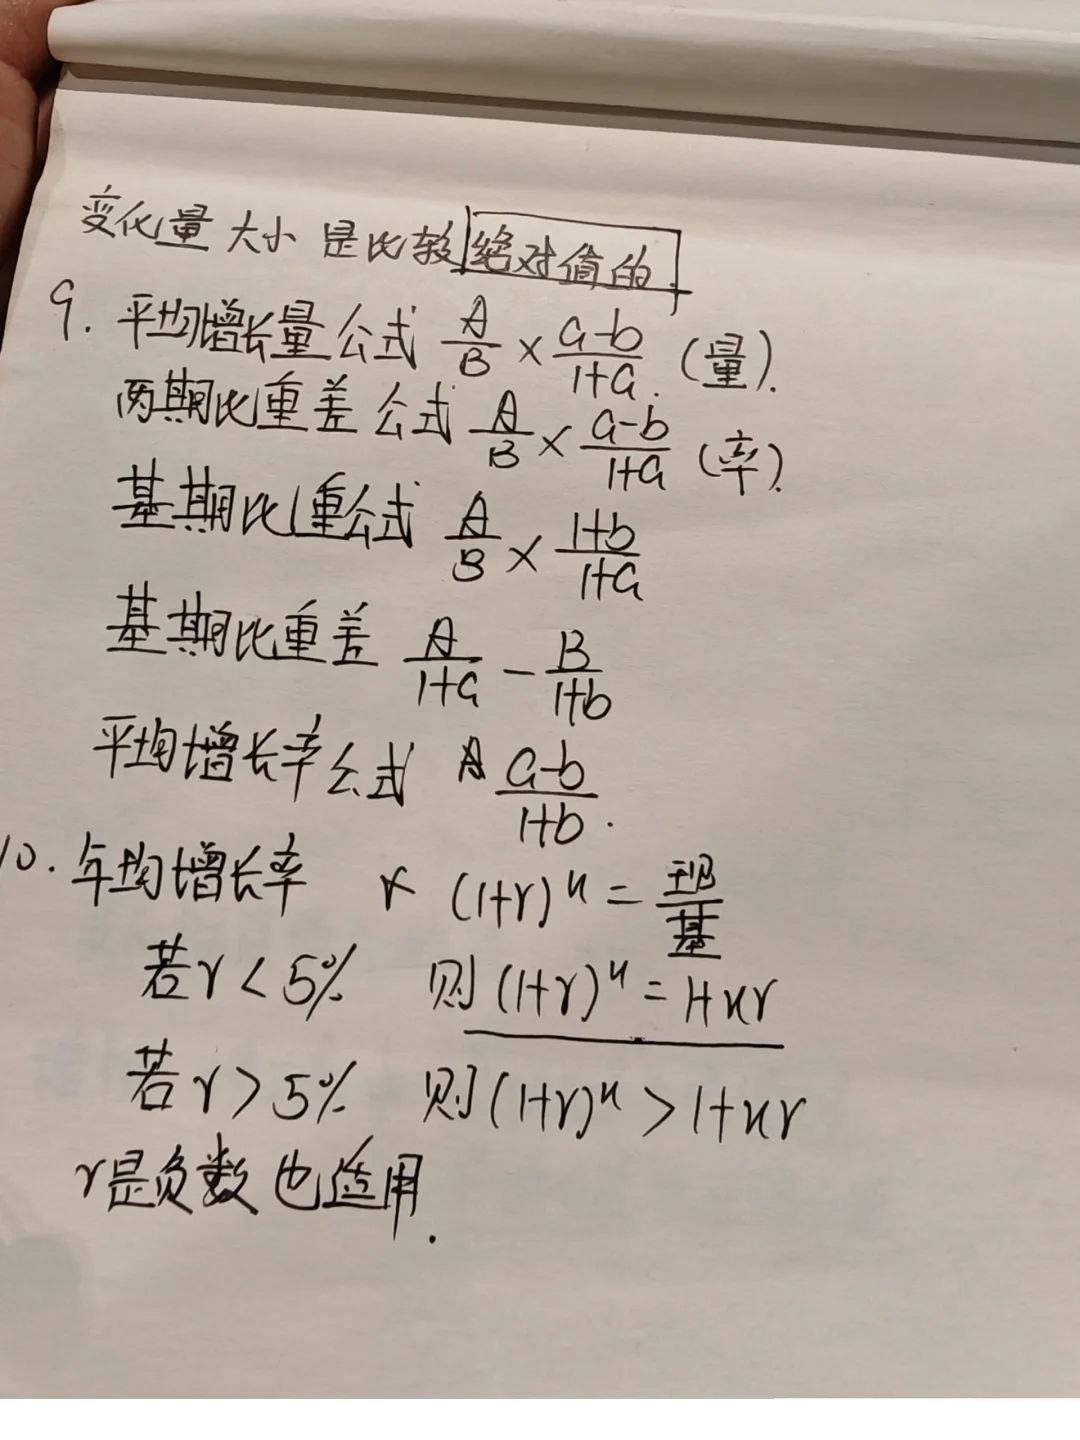 变化量大小是比较绝对值的
9. 平均增长量公式 A/B × (a-b)/(1+a) (量).
两期比重差公式 A/B × (a-b)/(1+a) (率).
基期比重公式 A/B × (1+b)/(1+a)
基期比重差 A/(1+a) - B/(1+b)
平均增长率公式 A (a-b)/(1+b).
10. 年均增长率 r (1+r)^n = 现/基
若r<5% 则(1+r)^n = 1+nr
若r>5% 则(1+r)^n > 1+nr
r是负数也适用.